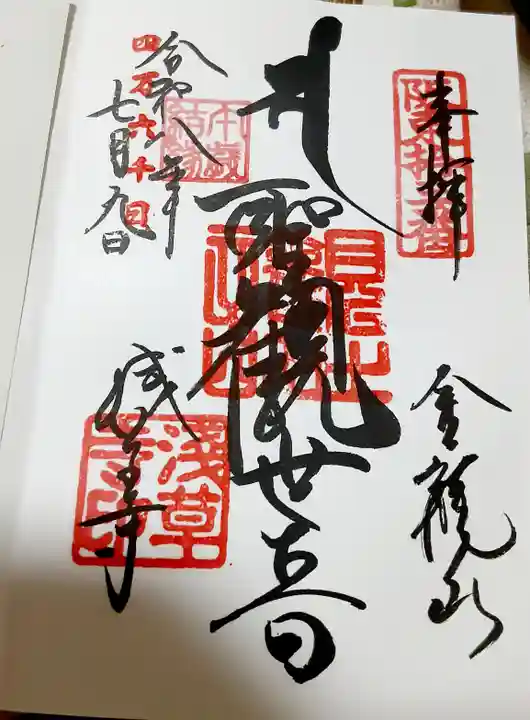 奉拝
金龍山
聖観世音
令和八年
七月九日
四万六千日
浅草寺
淺草寺印